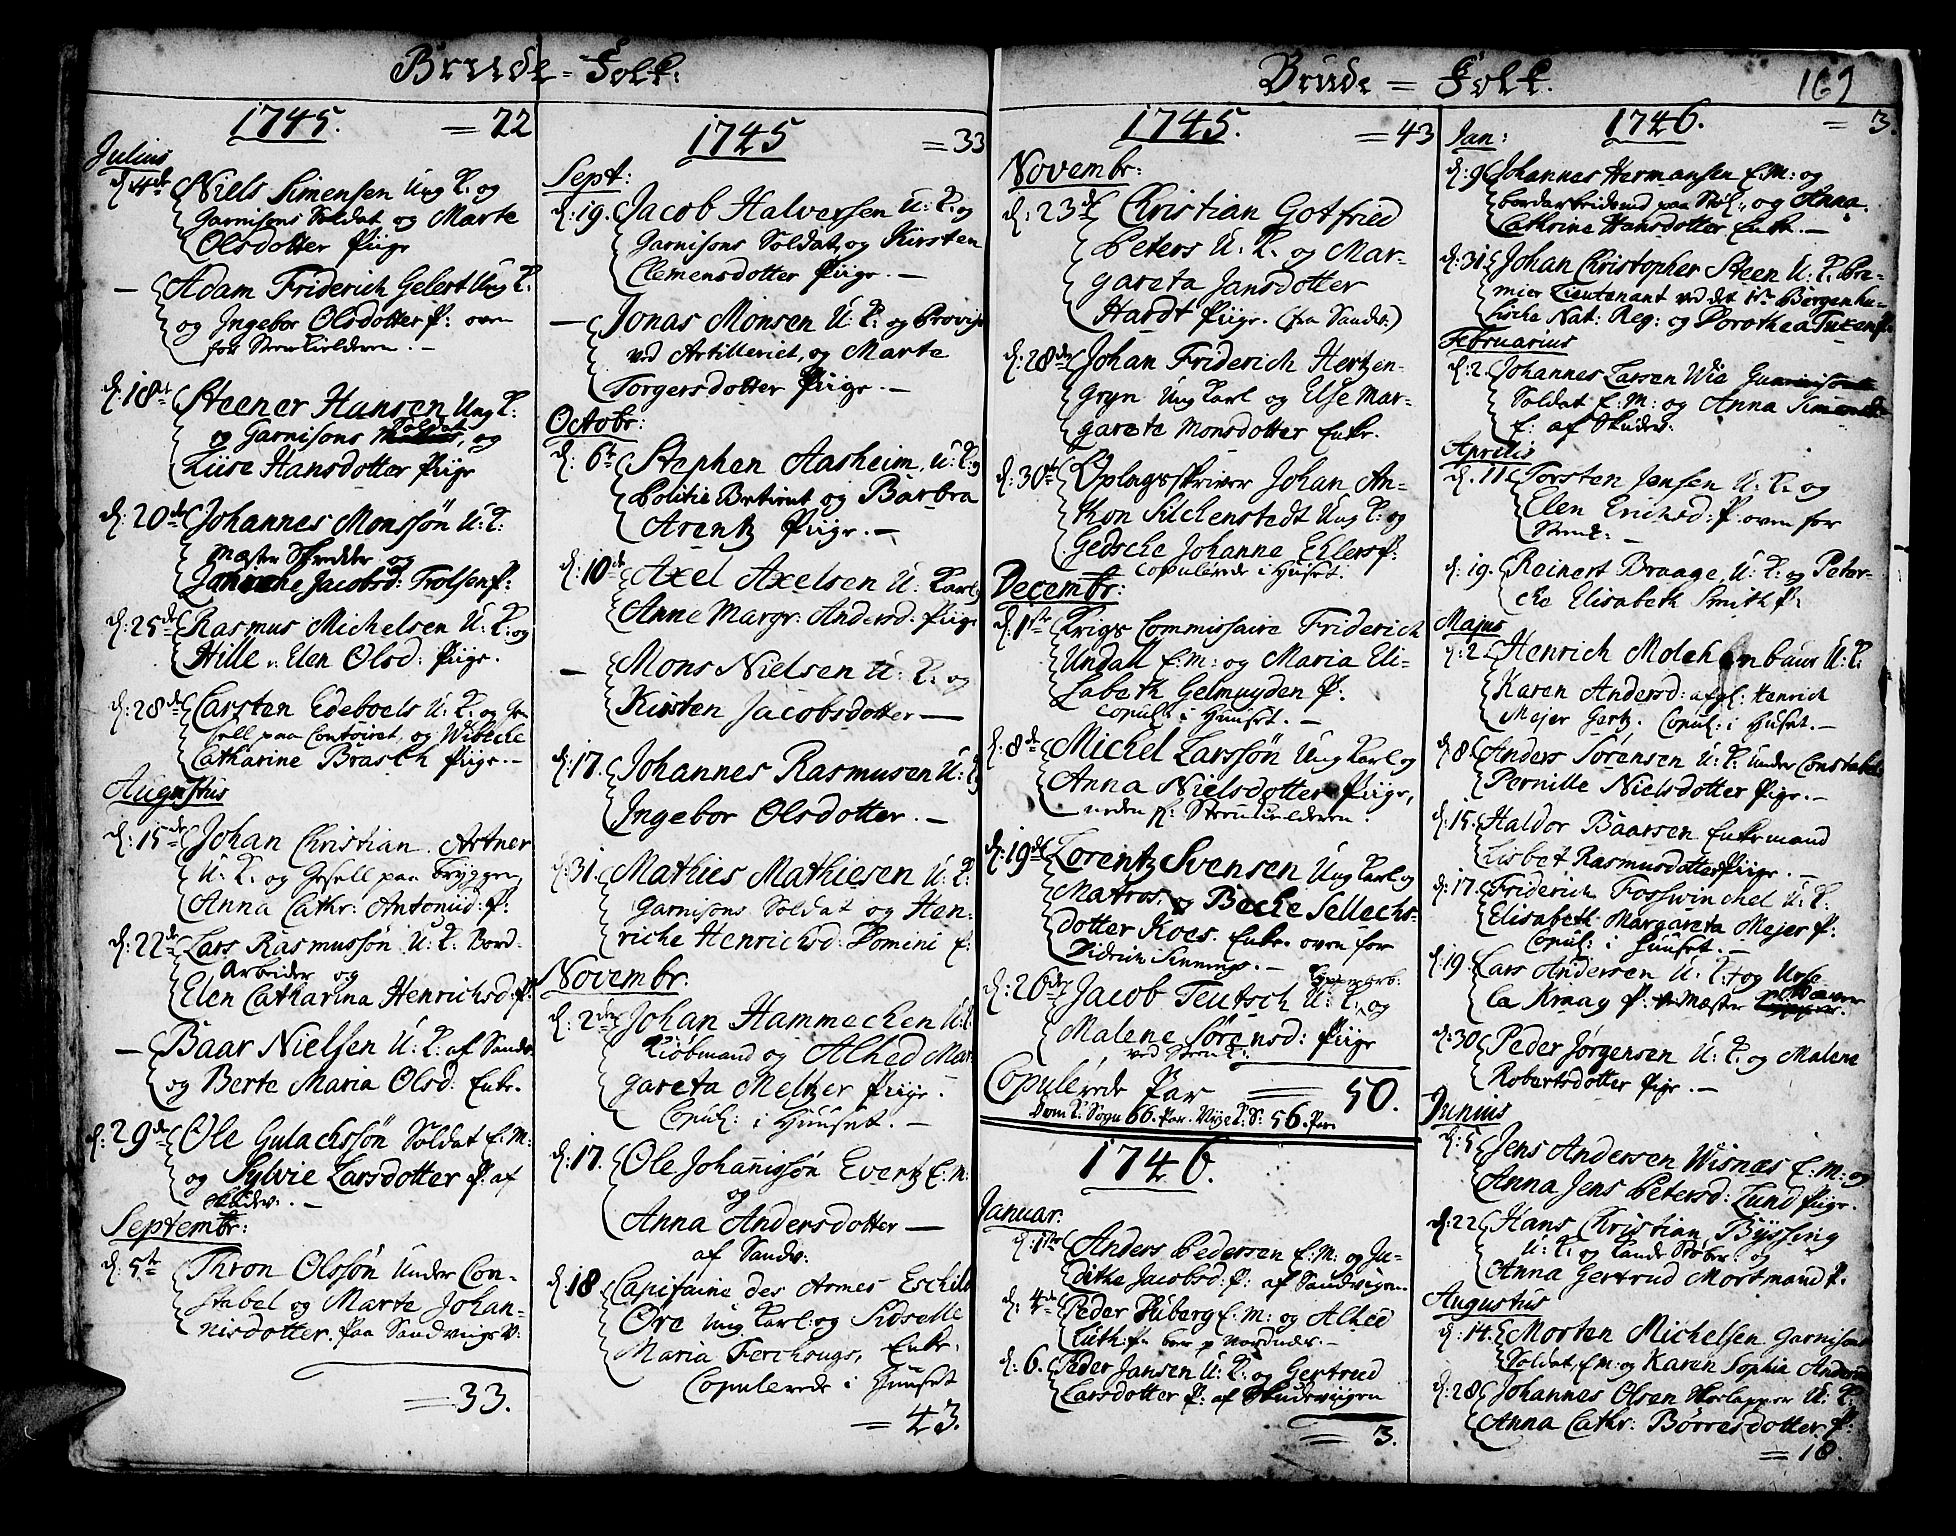 Brude = Folk:
1745. = 22
Julius
d. 4de Niels Simensen Ung K. og
Garnisons Soldat og Marte
Olsdotter Piige
— Adam Friderich Gelert Ung K.
og Ingebor Olsdotter P: oven
for
d. 18de Steener Hansen Ung K:
og Garnisons Soldat, og
Luse Hansdotter Piige
d: 20de Johannes Monssøn U: K:
Mæster Skredder og
Jacobsd: Trolsen P:
d: 25de Rasmus Michelsen U: K: og
Hille v: Elen Olsd: Piige.
d: 28de Carsten Edeboels U: K: og Ge-
sell paa Contoiret, og Wibecke
Catharine Brasch Piige. —
Augustus
d: 15de Johan Christian Artner
U: K: og Gesell paa Bryggen
Anna Cathr: Antonid: P:
d: 22de Lars Rasmussøn U: K: Bord-
Arbeider og
Elen Catharina Henrichsd: P:
— Baar Nielsen U: K: af Sandv:
og Berte Maria Olsd: Enke.
d: 29de Ole Gulachssøn Soldat E: M:
og Sylvie Larsdotter P: af
Skudev: . —
Septembr:
d: 5te Thron Olssøn Under Con-
stabel og Marte Johan-
nisdotter. Paa Sandviigs V:
= 33.
1745 = 33
Sept:
d: 19. Jacob Halversen U: K: og
Garnisons Soldat, og Kirsten
Clemensdotter Piige. —
— Jonas Monsen U: K: og
ved Artilleriet, og Marte
Torgersdotter Piige. —
Octobr:
d: 6te Stephen Aasheim, U: K: og
Politie Betient og Barbra
Arentz Piige. —
d: 10de Axel Axelsen U: Karl
Anne Margr: Andersd: Piige
— Mons Nielsen U: K: og
Kirsten Jacobsdotter —
d: 17. Johannes Rasmusen U: K:
Ingebor Olsdotter. —
d: 31. Mathies Mathiesen U: K:
Garnisons Soldat og Hen-
riche Henrichsd: Homini E:
Novembr:
d: 2den Johan Hammecken U: K:
Kiøbmand og Alhed Mar-
gareta Meltzer Piige.
Copul: i Huuset. —
d: 17. Ole Johannissøn Evertz E: M:
og
Anna Andersdotter —
af Sandv:
d: 18 Capitaine des Armes Eschild
Øre Ung Karl: og Sidselle
Maria Ferchougs, Enke.
Copulerede i Huuset
= 43.
Brude = Folk. 169
1745. = 43
Novembr:
d: 23de Christian Gotfried
Peters U: K: og Mar-
gareta Jansdotter
Hardt Piige. (fra Sandv:)
d: 28de Johan Friderich Hertzen-
gryn Ung Karl og Else Mar-
garete Monsdotter Enke.
d: 30te Oplagsskriver Johan An-
thon Silchenstedt Ung K: og
Gedsche Johanne Ehlers P:
Copulerede i Huset.
Decembr:
d: 1ste Krigs Commissaire Friderich
Undall E: M: og Maria Eli-
sabeth Gelmuyden P:
Copul: i Huuset. —
d: 8de Michel Larssøn Ung Karl og
Anna Nielsdotter Piige,
neden f:
d: 19de Lorentz Svensen Ung Karl og
Matros, og Beche Sellechs-
dotter Koes. Enke. oven for
Didrich Sinnings. —
d: 26de Jacob Teutsch U: K: og
Malene Sørensd: Piige
ved
Copulerede Par = 50.
Dom K: Sogn 66. Par. Nye K: S: 56. Par.
1746.
Januar:
d: 1ste Anders Pedersen E: M: og Ju-
dithe Jacobsd: P: af Sandvigen
d: 4de Peder Huberg E: M: og Alhed
Luth: P: boer p Nordnæs. —
d: 6. Peder Jansen U: K: og Gertrud
Larsdotter P: af Skudeviigen
= 3.
1746. = 3.
Jan:
d: 9 Johannes Hermansen E: M: og
bordarbeidend paa Støl:, og Anna
Cathrine Hansdotter Enke. —
d: 31. Johan Christopher Steen U: K. Pre-
mier Lieutenant ved det 1te Bergenhu-
siske Nat: Reg: og Dorothea Tuxen P.
Februarius
d: 2. Johannes Larsen Wie Garnisons
Soldat E: M: og Anna Simensd:
E: af Skudev:
Aprelis
d. 11. Torsten Jensen U: K: og
Elen Erichsd: P. oven for
d: 19. Reinert Braage, U: K: og Peter-
che Elisabeth Smith P:
Majus
d: 2. Henrich Molchenbaur U: K.
Karen Andersd: afgl: Henrich
Mejer Gertz. Copul: i Huset. —
d: 8. Anders Sørensen U: K: Under Constabel
Pernille Nielsdotter Pige. —
d: 15. Haldor Baarsen Enkemand
Lisbet Rasmusdotter Piige. —
d: 17. Friderich Fosswinchel U: K.
Elisabeth Margareta Mejer P:
Copul: i Huuset. —
d: 19. Lars Andersen U: K: og Urse-
la Kraag P: Mæster
d: 30 Peder Jørgensen U: K. og Malene
Robertsdotter Pige. —
Junius
d: 5 Jens Andersen Wisnæs E: M: og
Anna Jens Petersd: Lund Piige.
d: 22 Hans Christian Byssing
U: K: og Kande Støber og
Anna Gertrud Mortmand P.
Augustus
d: 14. Morten Michelsen Garnisons
Soldat, E: M: og Karen Sophia Andersd
d: 28 Johannes Olsen Skoelapper U: K:
Anna Cathr: Børresdotter P:
= 18.